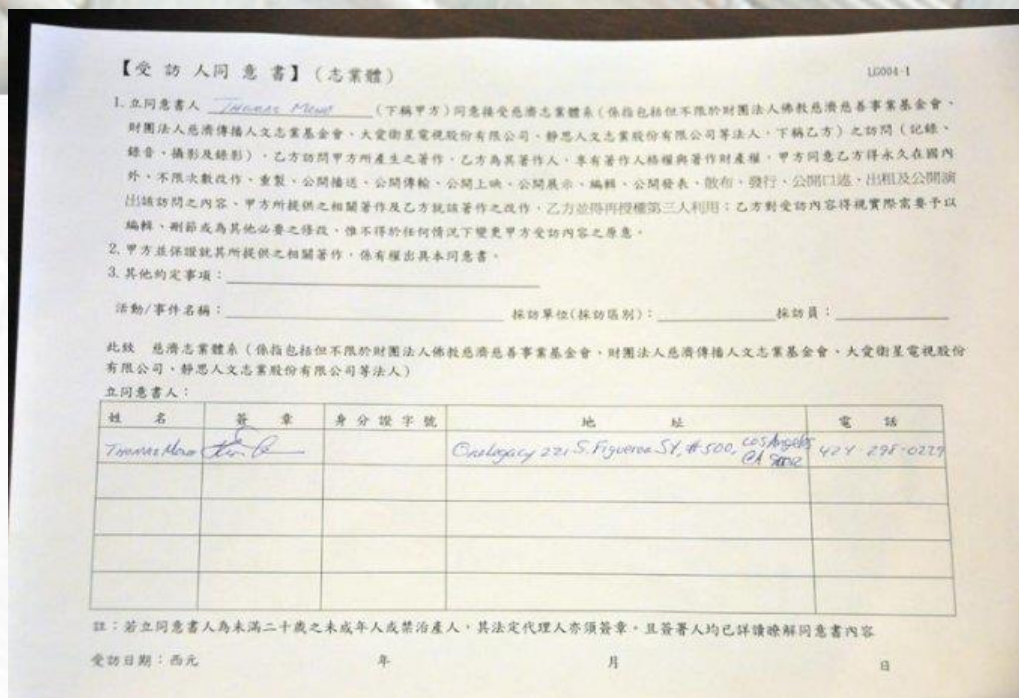 【受 訪 人 同 意 書】(志業體)
LG004-1
1. 立同意書人 Thomas Mone (下稱甲方)同意接受慈濟志業體系(係指包括但不限於財團法人佛教慈濟慈善事業基金會、
財團法人慈濟傳播人文志業基金會、大愛衛星電視股份有限公司、靜思人文志業股份有限公司等法人,下稱乙方)之訪問(記錄、
錄音、攝影及錄影),乙方訪問甲方所產生之著作,乙方為其著作人,享有著作人格權與著作財產權,甲方同意乙方得永久在國內
外、不限次數改作、重製、公開播送、公開傳輸、公開上映、公開展示、編輯、公開發表、散布、發行、公開口述、出租及公開演
出該訪問之內容、甲方所提供之相關著作及乙方就該著作之改作,乙方並得再授權第三人利用;乙方對受訪內容得視實際需要予以
編輯、刪節或為其他必要之修改,惟不得於任何情況下變更甲方受訪內容之原意。
2. 甲方並保證就其所提供之相關著作,係有權出具本同意書。
3. 其他約定事項:
活動/事件名稱: 採訪單位(採訪區別): 採訪員:
此致 慈濟志業體系(係指包括但不限於財團法人佛教慈濟慈善事業基金會、財團法人慈濟傳播人文志業基金會、大愛衛星電視股份
有限公司、靜思人文志業股份有限公司等法人)
立同意書人:
姓 名 簽 章 身分證字號 地 址 電 話
Thomas Mone OneLegacy 221 S. Figueroa St, #500, Los Angeles CA 424-298-0229
註:若立同意書人為未滿二十歲之未成年人或禁治產人,其法定代理人亦須簽章。且簽署人均已詳讀瞭解同意書內容
受訪日期:西元 年 月 日